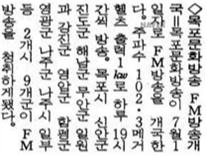 ◇목포문화방송 FM 개
국=목포문화방송이 7월1
일자로 FM방송을 개국한
다. 주파수 102·3메거
헬츠 출력 1kw로 하루 19시
간씩 방송. 목포시 신안군
진도군 해남군 무안군 일원
과 강진군 영암군 함평군
영광군 나주군 나주시 일부
등 2개시 9개군이 FM
방송을 청취하게됐다.